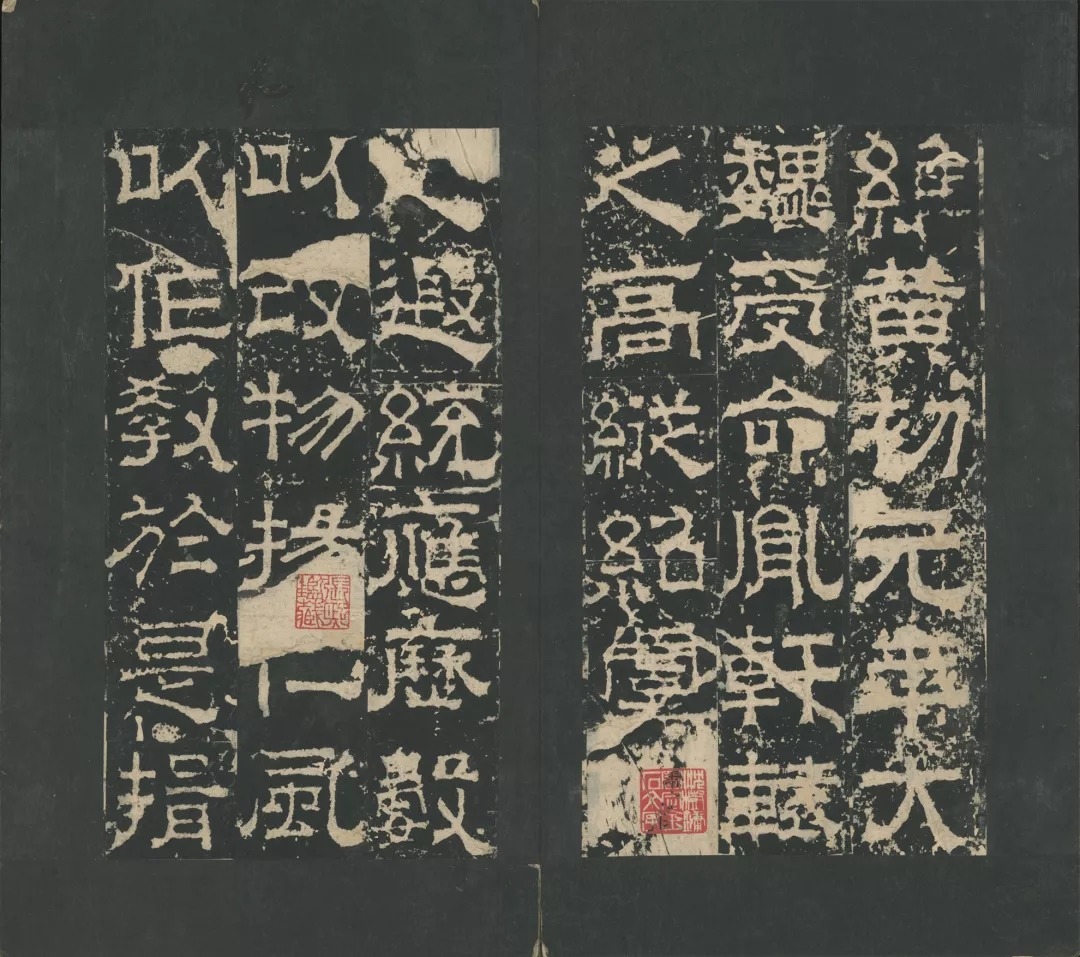 維黃初元年大
魏受命胤軒轅
之高縱紹虞
之遐統應歷數
以改物揚仁風
以作教於是揖